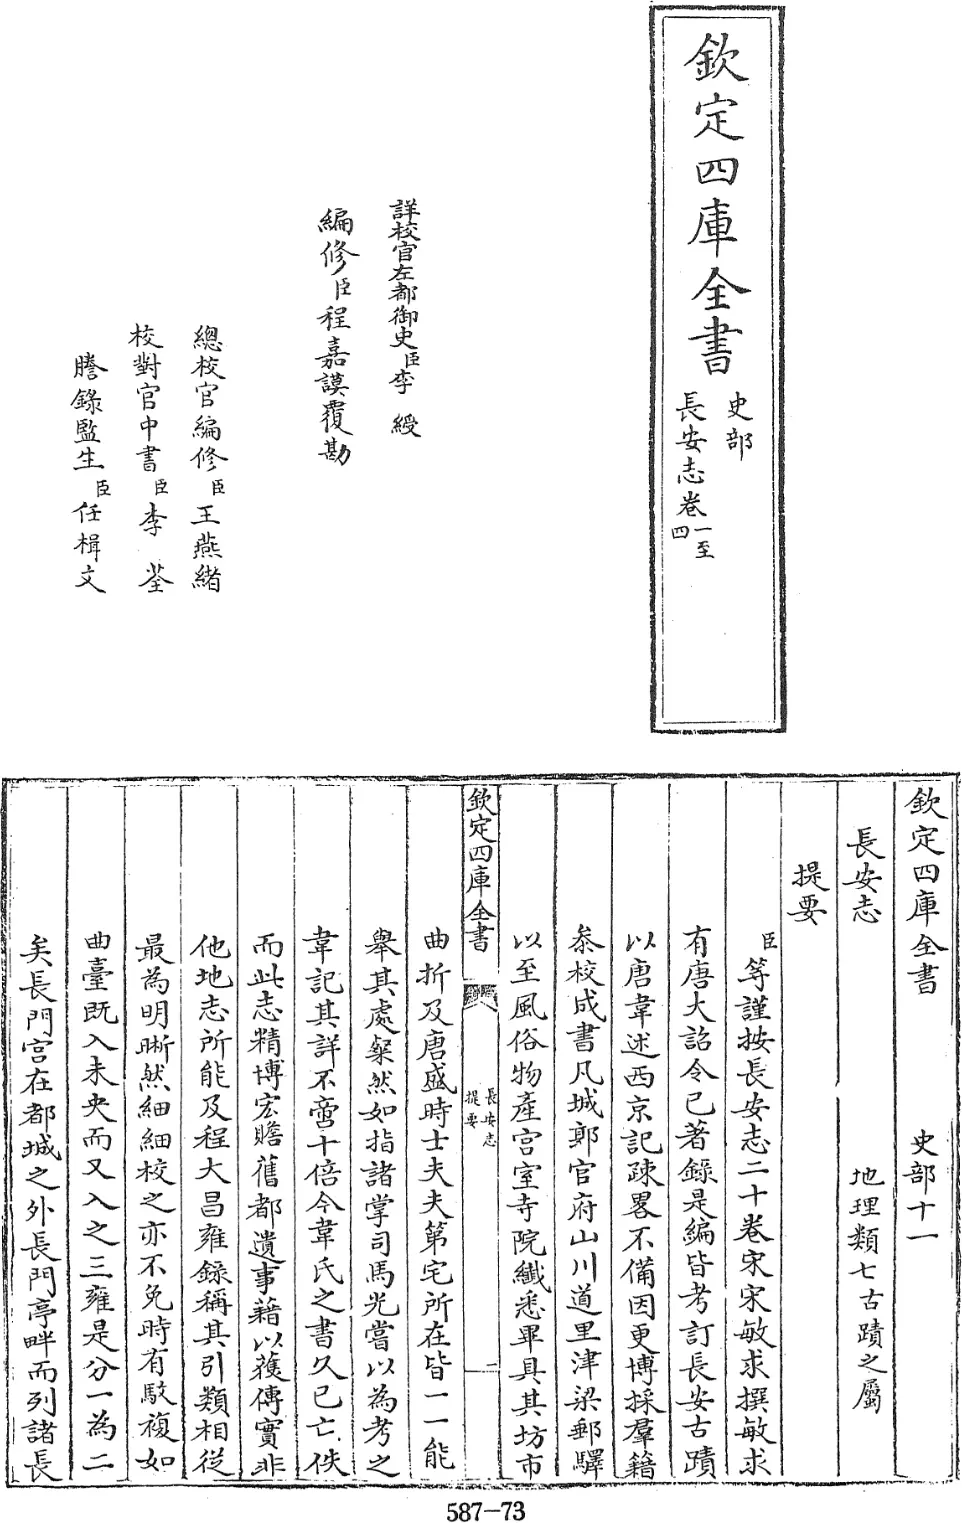 欽定四庫全書
史部
長安志卷一至四
詳校官左都御史臣李綬
編修臣程嘉謨覆勘
總校官編修臣王燕緒
校對官中書臣李荃
謄錄監生臣任楫文
欽定四庫全書 史部十一
長安志 地理類七古蹟之屬
提要
臣等謹按長安志二十卷宋宋敏求撰敏求
有唐大詔令已著錄是編皆考訂長安古蹟
以唐韋述西京記疎畧不備因更博採羣籍
叅校成書凡城郭官府山川道里津梁郵驛
以至風俗物產宫室寺院纎悉畢具其坊市
欽定四庫全書 長安志提要 一
曲折及唐盛時士大夫第宅所在皆一一能
舉其處粲然如指諸掌司馬光嘗以為考之
韋記其詳不啻十倍今韋氏之書久已亡佚
而此志精博宏贍舊都遺事藉以獲傳實非
他地志所能及程大昌雍錄稱其引類相從
最為明晰然細細校之亦不免時有駁複如
曲臺既入未央而又入之三雍是分一為二
矣長門宫在都城之外長門亭畔而列諸長
587-73